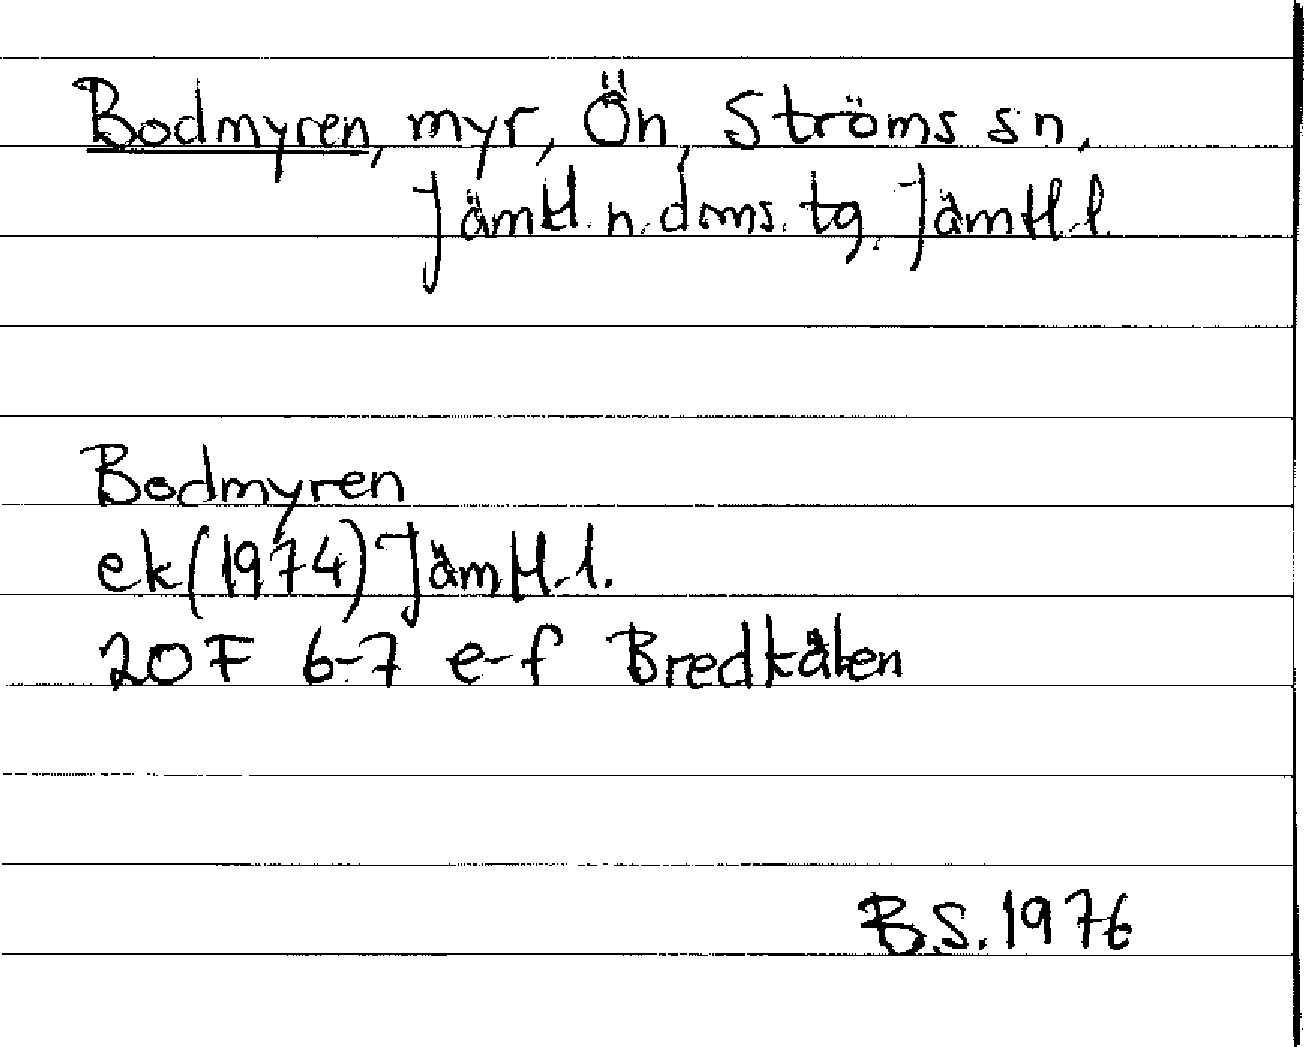 Bodmyren, myr, Ön, Ströms sn,
Jämtl. n. doms. tg. Jämtl. l.
Bodmyren
ek (1974) Jämtl. l.
20F 6-7 e-f Bredkälen
B.S. 1976